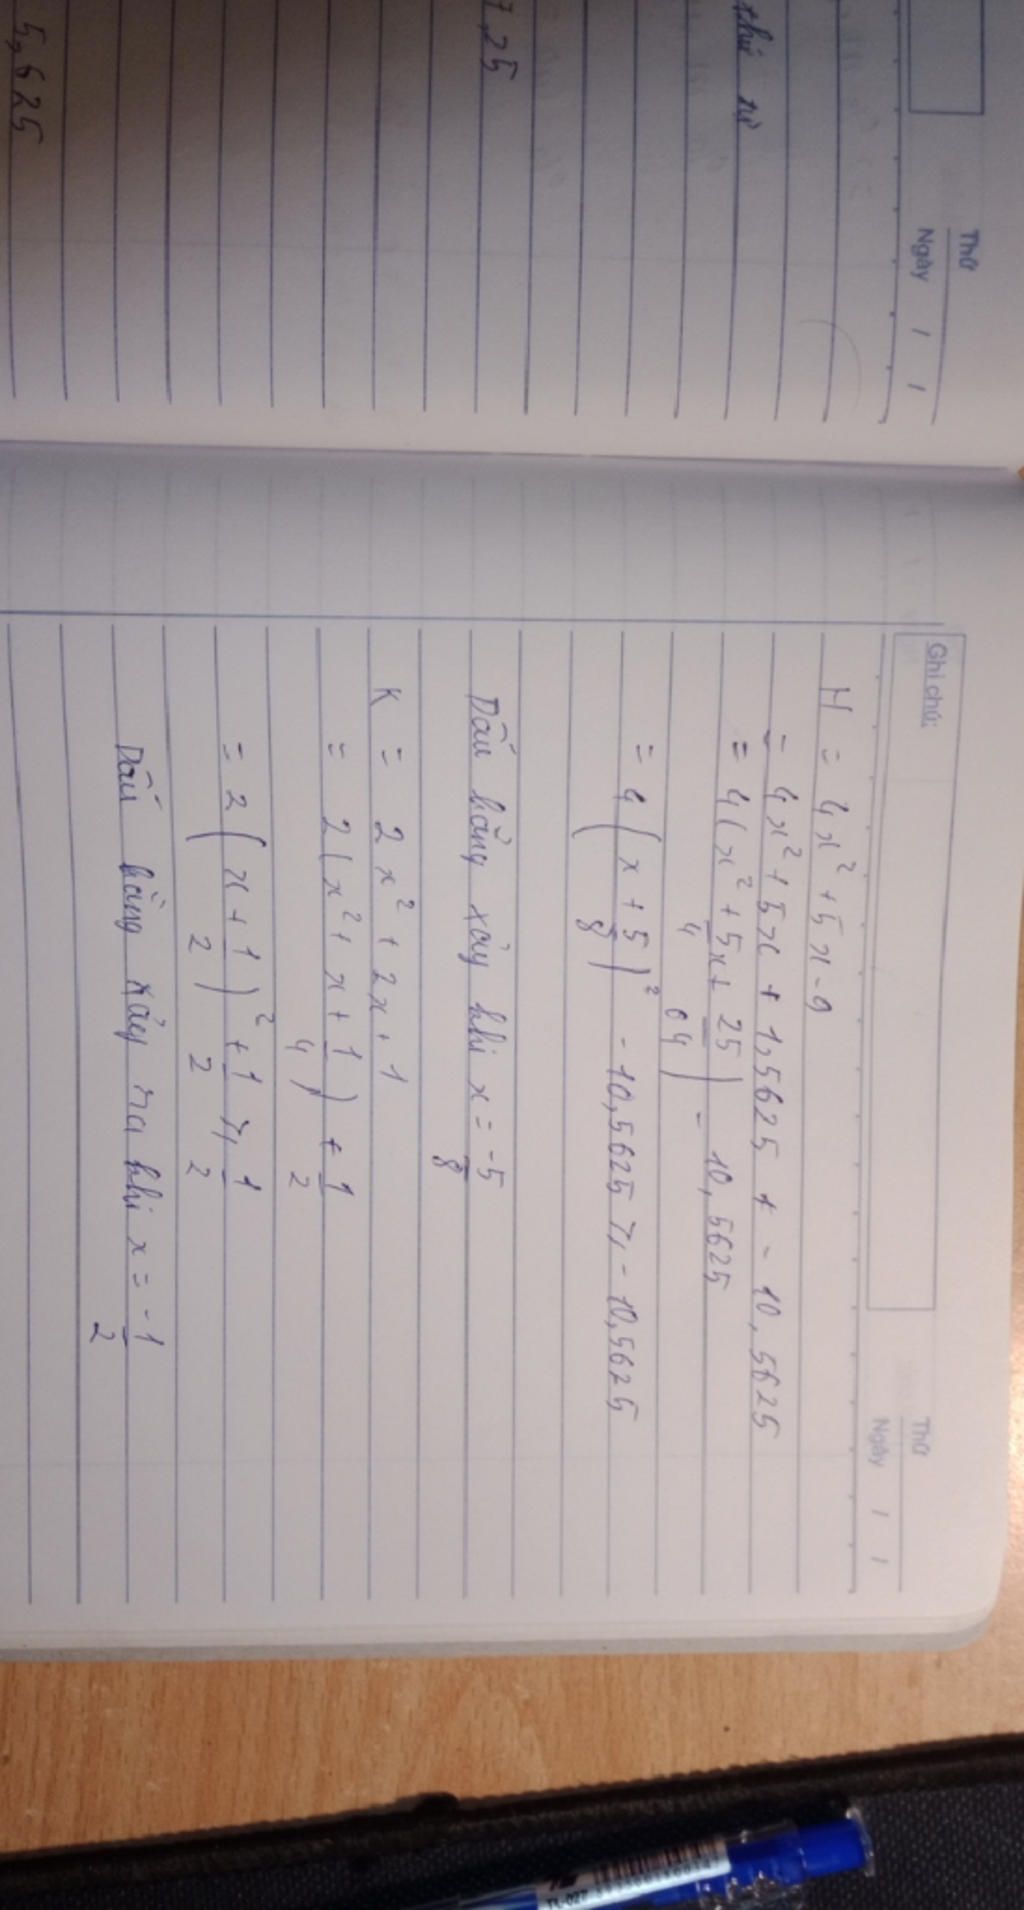 Thứ
Ngày / /
thi tự
7,25
5,625
Ghi chú:
Thứ
Ngày / /
H = 4x² + 5x - 9
= 4x² + 5x + 1,5625 + - 10,5625
= 4(x² + 5/4x + 25/64) - 10,5625
= 4(x + 5/8)² - 10,5625 ≥ - 10,5625
Dấu bằng xảy khi x = -5/8
K = 2x² + 2x + 1
= 2(x² + x + 1/4) + 1/2
= 2(x + 1/2)² + 1/2 ≥ 1/2
Dấu bằng xảy ra khi x = -1/2
TL-027